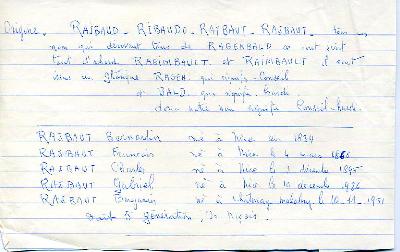 Origine. RAIBAUD - RIBAUDO - RAYBAUT - RAIBAUT - tous ces
noms qui dérivent tous de RAGENBALD ce ont suit
tout d'abord RAGIMBAULT et RAIMBAULT il sont
issus du Germanique RAGEN, qui signifie - Conseil
et WALD, qui signifie - Garde.
donc notre nom signifie Conseil-Garde.
RAIBAUT Bernardin né à Nice en 1834
RAIBAUT François né à Nice le 4 mars 1866
RAIBAUT Charles né à Nice le 1 décembre 1895
RAIBAUT Gabriel né à Nice le 10 décembre 1926
RAIBAUT Benjamin né à Châtenay malabry le 10-11-1951
soit 5 génération, de Niçois.